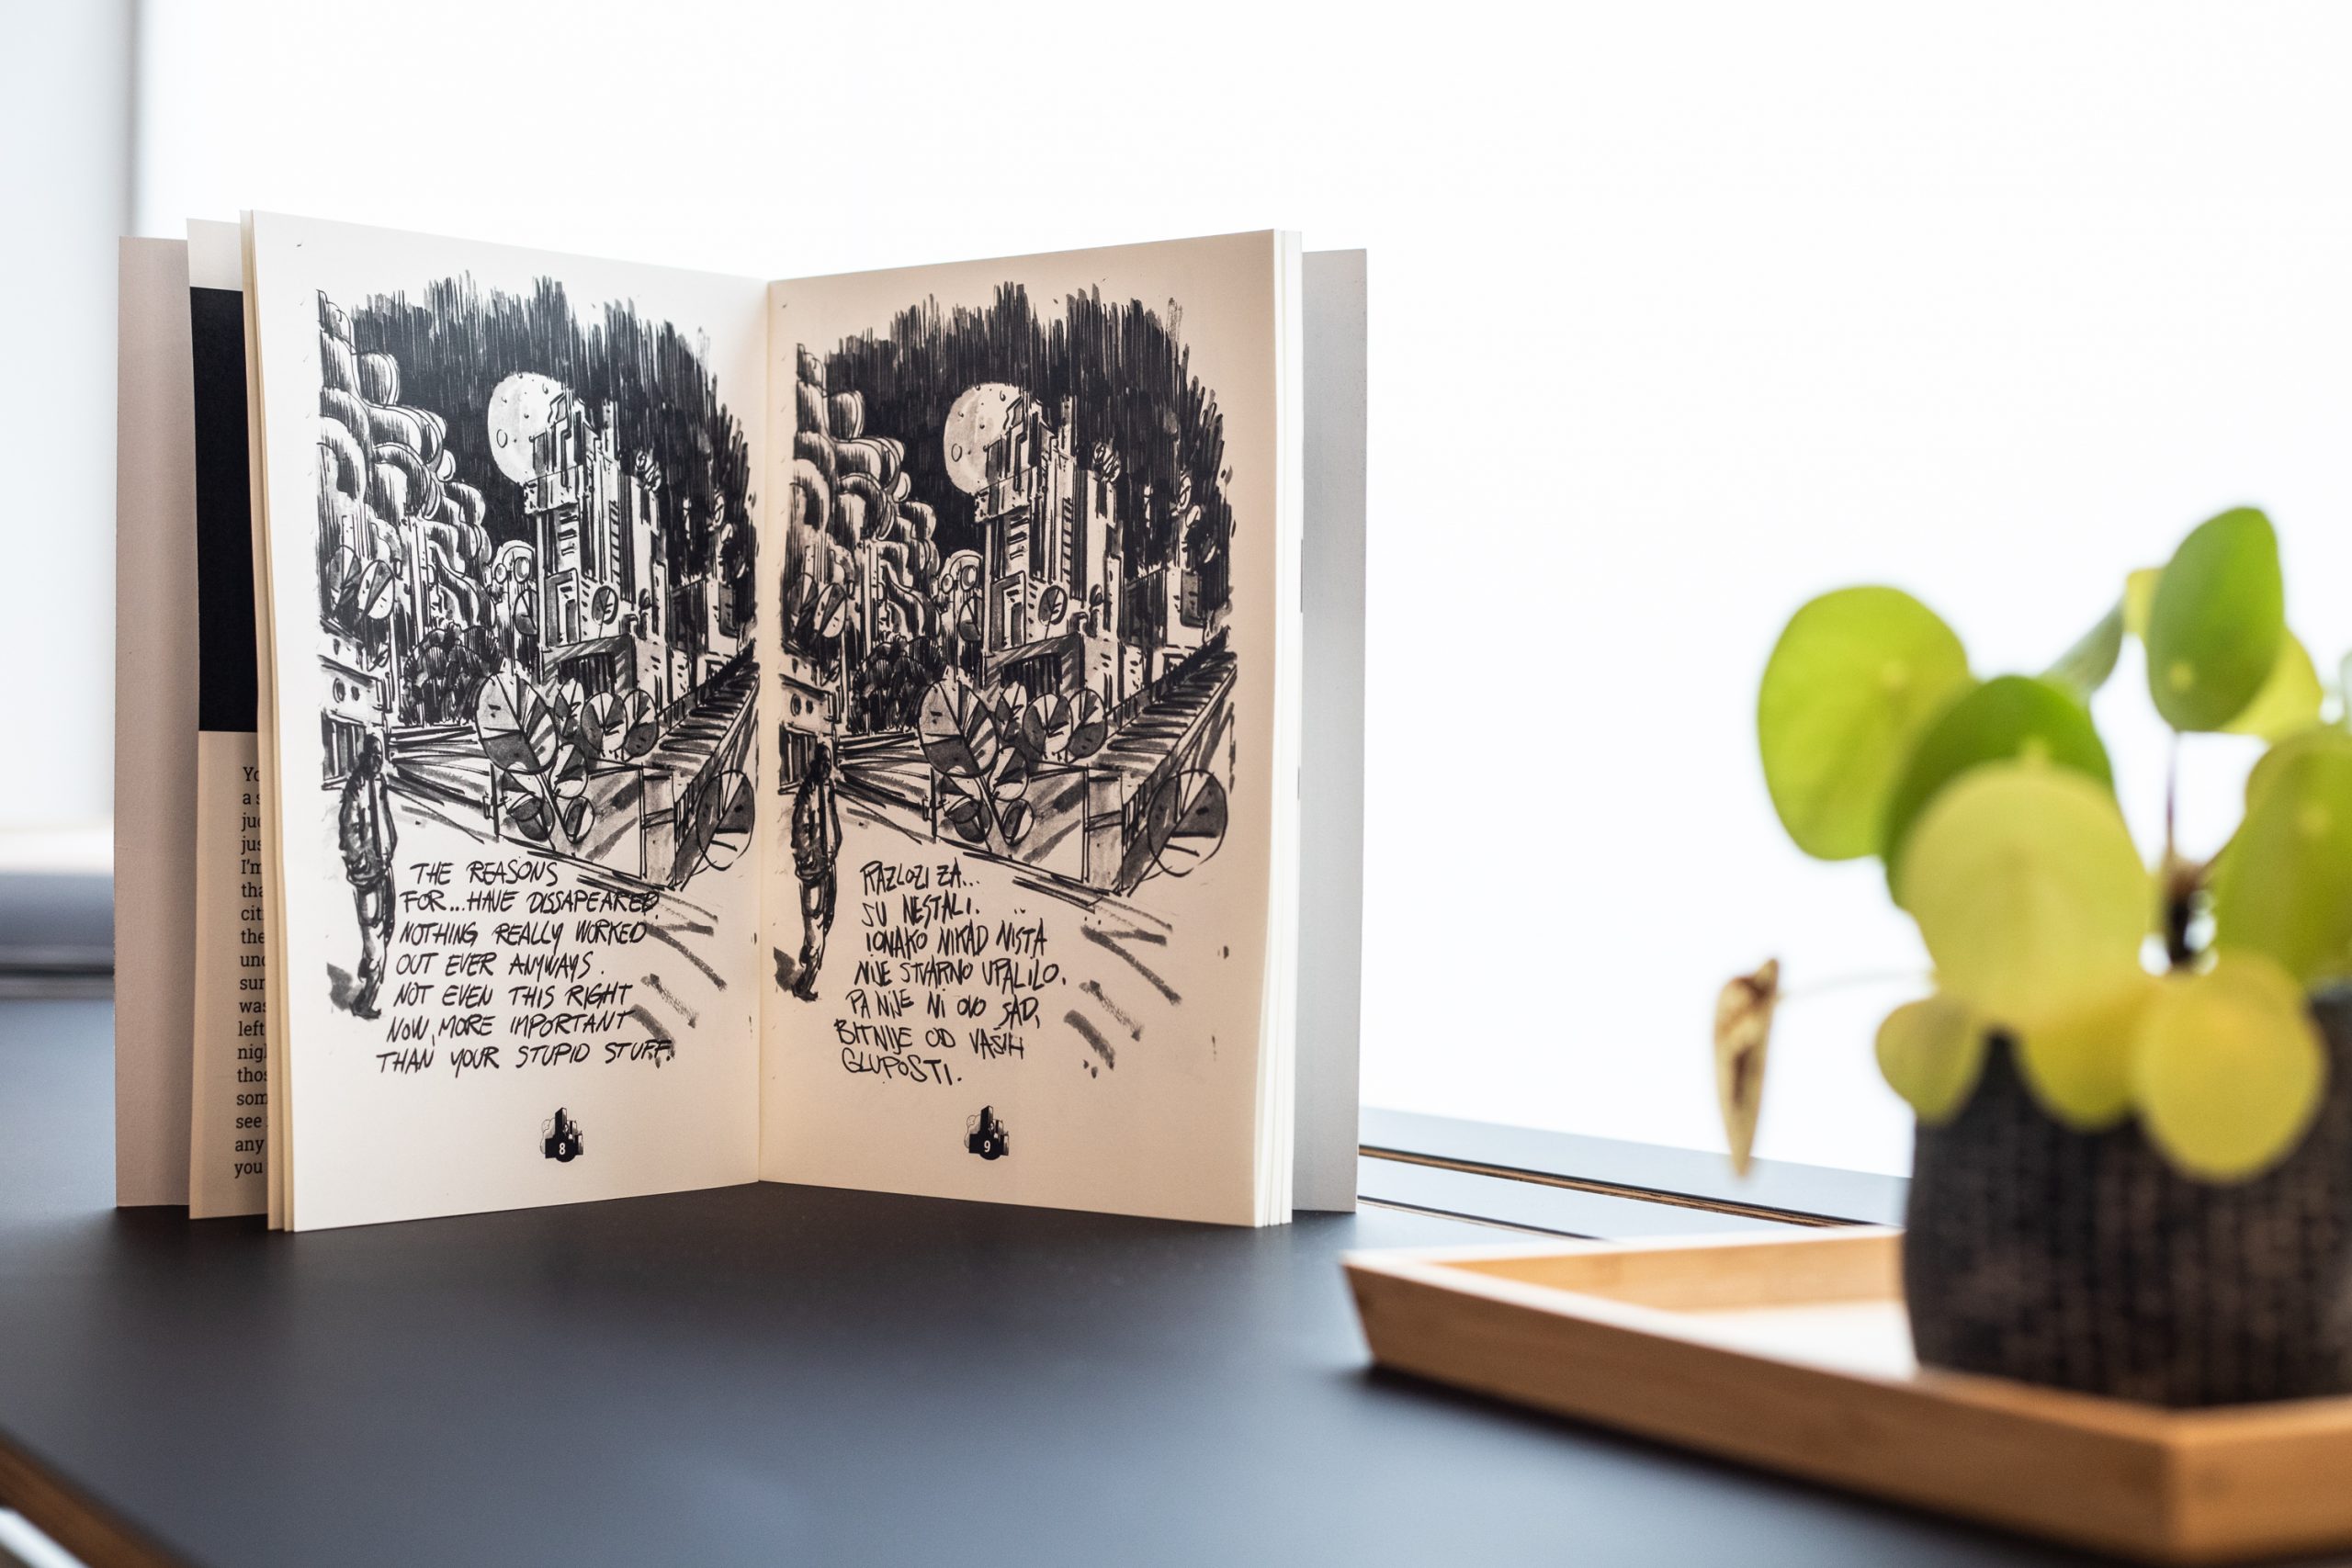 a
I'm
the
left
see
any
you
THE REASONS
FOR...HAVE DISSAPEARED.
NOTHING REALLY WORKED
OUT EVER ANYWAYS.
NOT EVEN THIS RIGHT
NOW, MORE IMPORTANT
THAN YOUR STUPID STUFF.
8
RAZLOZI ZA...
SU NESTALI.
IONAKO NIKAD NIŠTA
NIJE STVARNO UPALILO.
PA NIJE NI OVO SAD,
BITNIJE OD VAŠIH
GLUPOSTI.
9